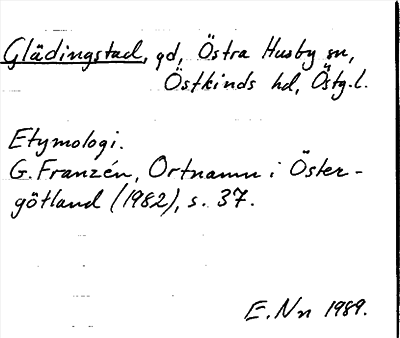 Glädingstad, gd, Östra Husby sn,
Östkinds hd, Östg.l.
Etymologi.
G. Franzén, Ortnamn i Öster-
götland (1982), s. 37.
E. Nn 1989.